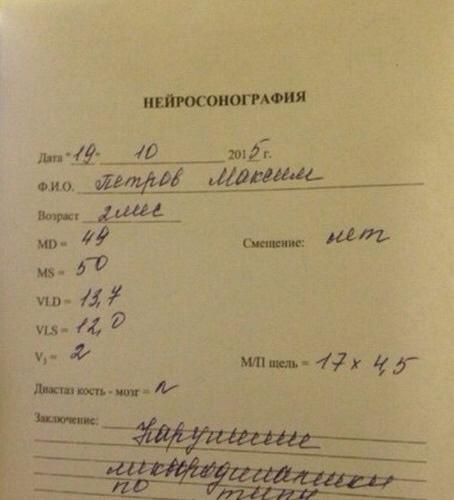 НЕЙРОСОНОГРАФИЯ
Дата "19" 10 2015 г.
Ф.И.О. Петров Максим
Возраст 2мес
MD = 49 Смещение: нет
MS = 50
VLD = 13,7
VLS = 12,0
V3 = 2 М/П щель = 17 x 4,5
Диастаз кость - мозг = n
Заключение: Нарушение
по типу